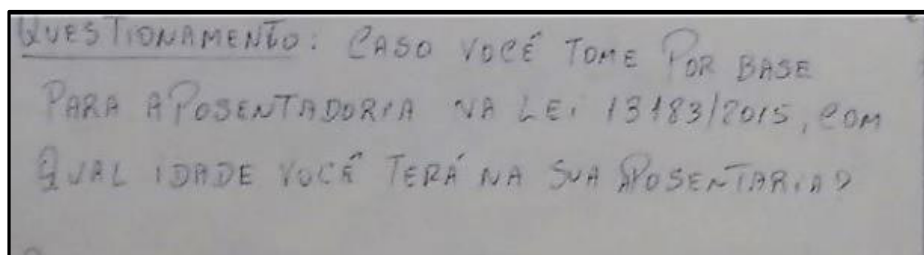 QUESTIONAMENTO: CASO VOCÊ TOME POR BASE
PARA APOSENTADORIA NA LEI 13183/2015, COM
QUAL IDADE VOCÊ TERÁ NA SUA APOSENTARIA?